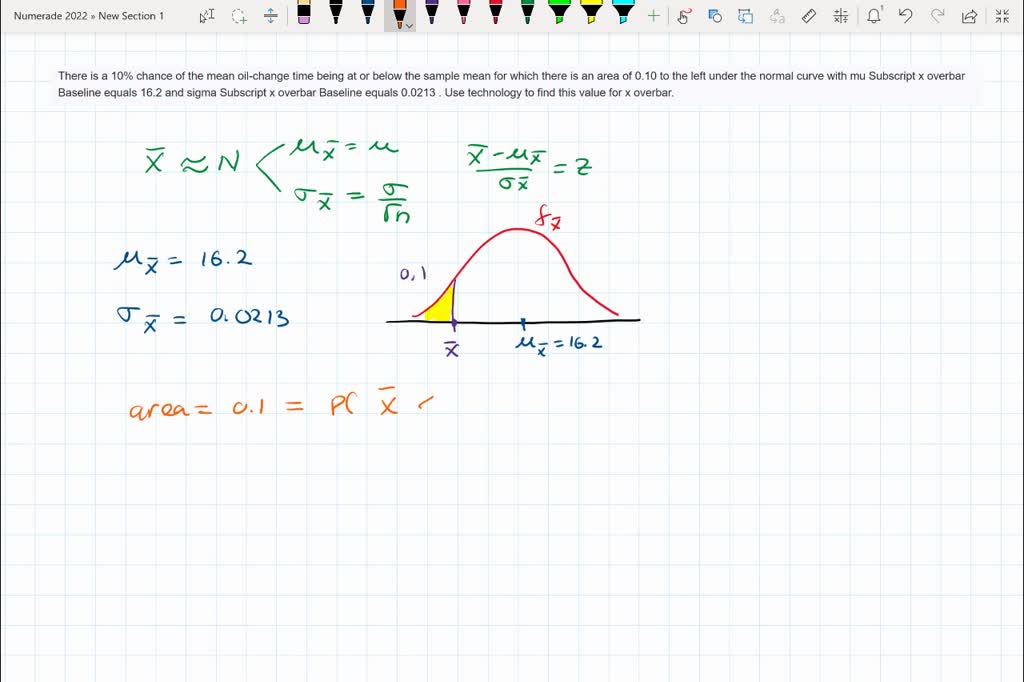 Numerade 2022 » New Section 1
There is a 10% chance of the mean oil-change time being at or below the sample mean for which there is an area of 0.10 to the left under the normal curve with mu Subscript x overbar
Baseline equals 16.2 and sigma Subscript x overbar Baseline equals 0.0213 . Use technology to find this value for x overbar.
x̄ ≈ N < μx̄ = μ
σx̄ = σ/√n
(x̄ - μx̄)/σx̄ = z
μx̄ = 16.2
σx̄ = 0.0213
0,1
x̄
μx̄ = 16.2
area = 0.1 = P( x̄ <